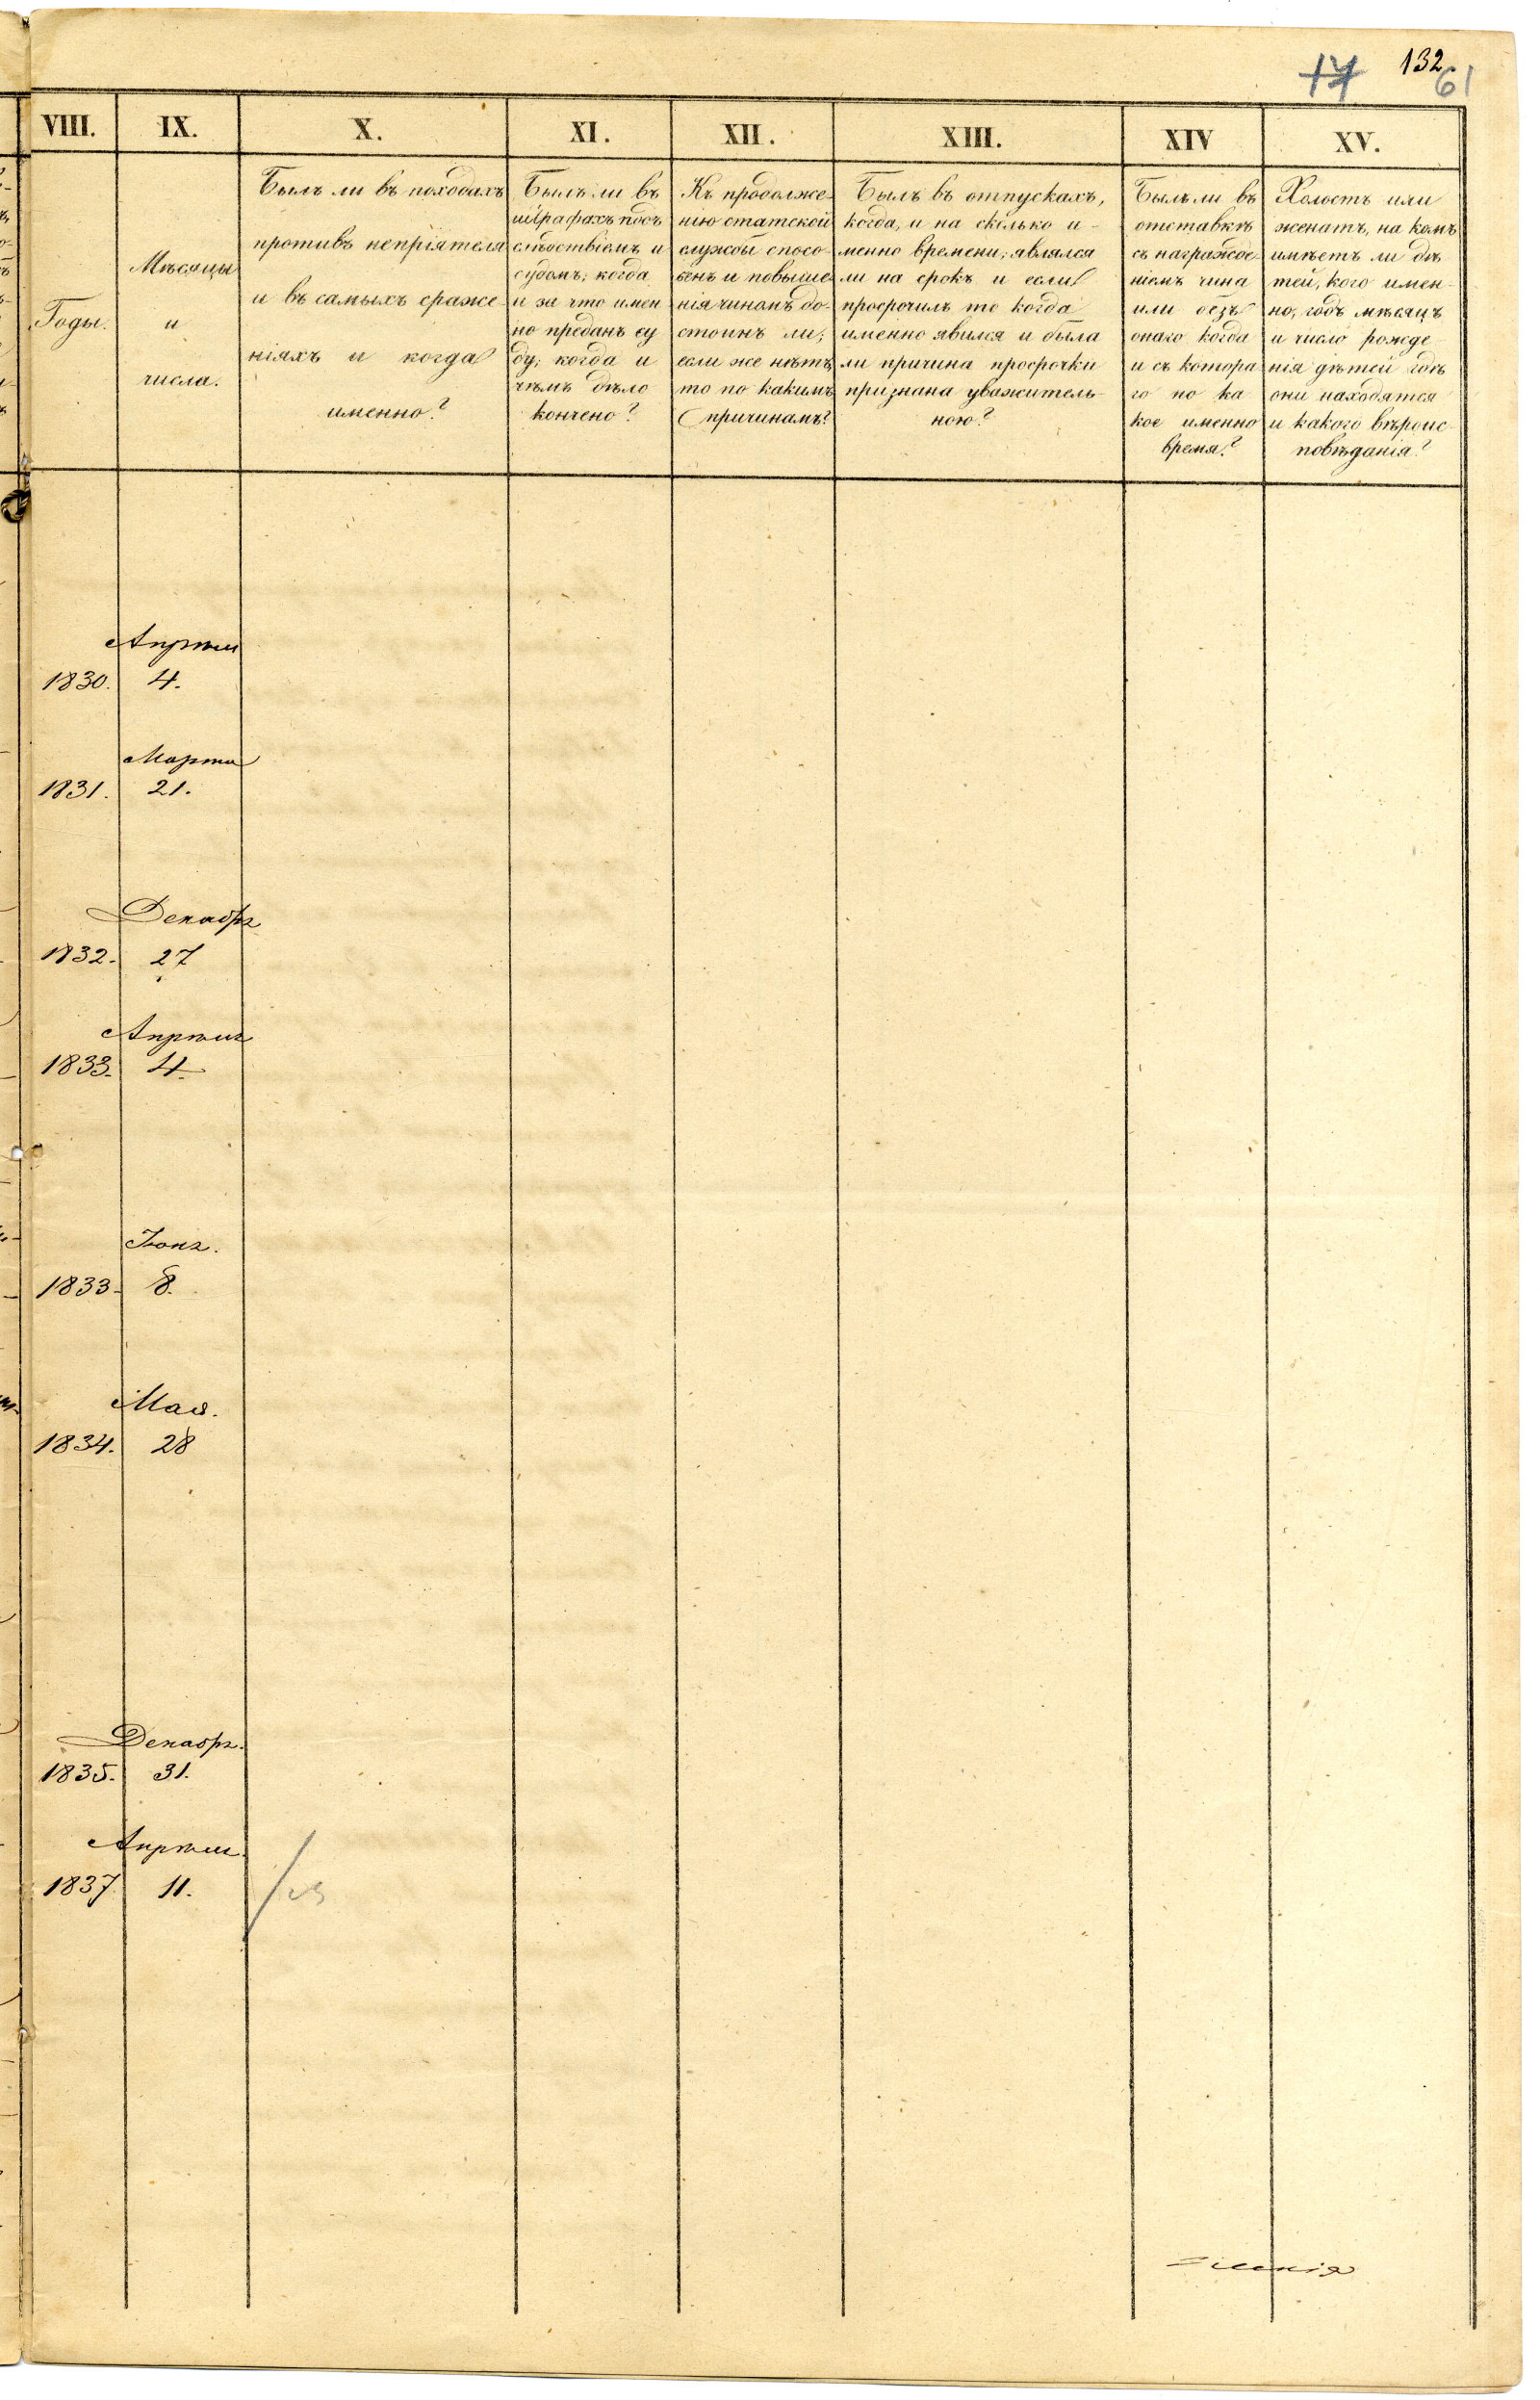 17 132
61
VIII. IX. X. XI. XII. XIII. XIV XV.
Годы.
Мѣсяцы
и
числа.
Былъ ли въ походахъ
противъ непріятеля
и въ самыхъ сраже
ніяхъ и когда
именно?
Былъ ли въ
штрафахъ подъ
слѣдствіемъ и
судомъ; когда
и за что имен
но преданъ су
ду; когда и
чѣмъ дѣло
кончено?
Къ продолже-
нію статской
службы спосо-
бенъ и повыше-
нія чиномъ до-
стоинъ ли;
если же нѣтъ,
то по какимъ
причинамъ?
Былъ въ отпускахъ,
когда, и на сколько и-
менно времени; являлся
ли на срокъ и если
просрочилъ то когда
именно явился и была
ли причина просрочки
признана уважитель-
ною?
Былъ ли въ
отставкѣ
съ награжде-
ніемъ чина
или безъ
онаго когда
и съ котора
го по ка
кое именно
время?
Холостъ или
женатъ, на комъ
имѣетъ ли дѣ
тей, кого имен-
но, годъ мѣсяцъ
и число рожде-
нія дѣтей гдѣ
они находятся
и какого вѣроис-
повѣданія?
Апрѣля
1830. 4.
Марта
1831. 21.
Декабря
1832. 27
Апрѣля
1833. 4.
Іюня.
1833. 8.
Мая.
1834. 28
Декабря.
1835. 31.
Апрѣля.
1837 11.